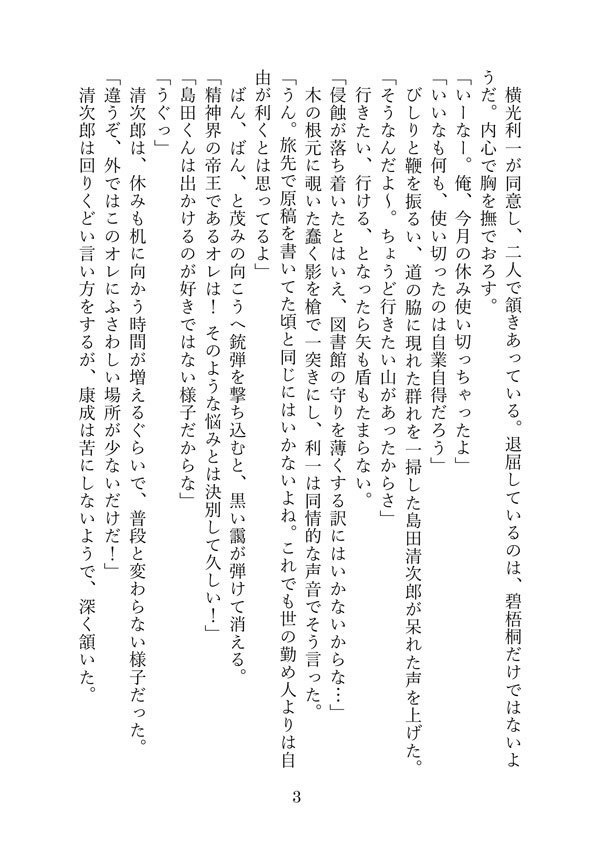 横光利一が同意し、二人で頷きあっている。退屈しているのは、碧梧桐だけではないよ
うだ。内心で胸を撫でおろす。
「いーなー。俺、今月の休み使い切っちゃったよ」
「いいなも何も、使い切ったのは自業自得だろう」
びしりと鞭を振るい、道の脇に現れた群れを一掃した島田清次郎が呆れた声を上げた。
「そうなんだよ～。ちょうど行きたい山があったからさ」
行きたい、行ける、となったら矢も盾もたまらない。
「侵蝕が落ち着いたとはいえ、図書館の守りを薄くする訳にはいかないからな…」
木の根元に覗いた蠢く影を槍で一突きにし、利一は同情的な声音でそう言った。
「うん。旅先で原稿を書いてた頃と同じにはいかないよね。これでも世の勤め人よりは自
由が利くとは思ってるよ」
ばん、ばん、と茂みの向こうへ銃弾を撃ち込むと、黒い靄が弾けて消える。
「精神界の帝王であるオレは！ そのような悩みとは決別して久しい！」
「島田くんは出かけるのが好きではない様子だからな」
「うぐっ」
清次郎は、休みも机に向かう時間が増えるぐらいで、普段と変わらない様子だった。
「違うぞ、外ではこのオレにふさわしい場所が少ないだけだ！」
清次郎は回りくどい言い方をするが、康成は苦にしないようで、深く頷いた。
3